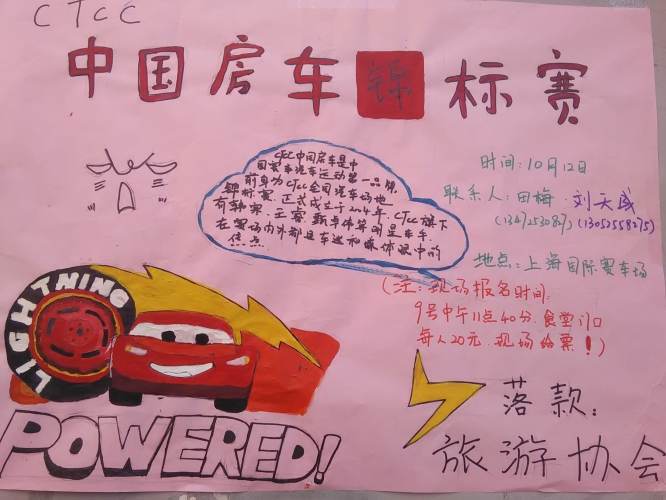 CTCC
中国房车锦标赛
CTCC中国房车是中
国赛车汽车运动第一品牌,
前身为CTCC全国汽车场地
锦标赛.正式成立于2004年,CTCC旗下
有韩寒.王睿.甄卓伟等明星车手.
在赛场内外都是车迷和媒体眼中的
焦点.
时间:10月12日
联系人:田梅.刘天威
地点:上海国际赛车场
(注:现场报名时间:
9号中午11点40分.食堂门口
每人20元.现场给票!)
LIGHTNING
POWERED!
落款:
旅游协会